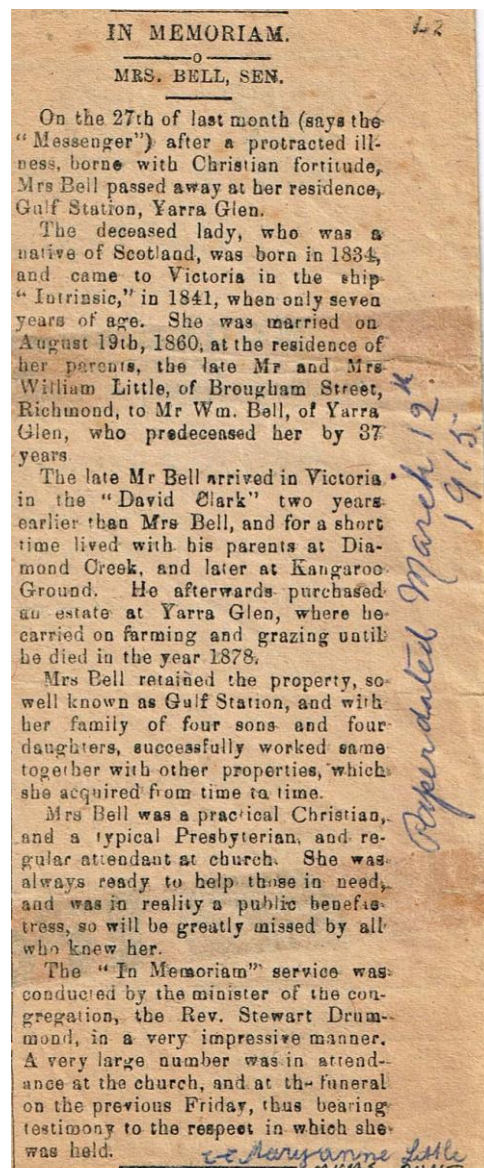 42
IN MEMORIAM.
o
MRS. BELL, SEN.
On the 27th of last month (says the
"Messenger") after a protracted ill-
ness, borne with Christian fortitude,
Mrs Bell passed away at her residence,
Gulf Station, Yarra Glen.
The deceased lady, who was a
native of Scotland, was born in 1834,
and came to Victoria in the ship
"Intrinsic," in 1841, when only seven
years of age. She was married on
August 19th, 1860, at the residence of
her parents, the late Mr and Mrs
William Little, of Brougham Street,
Richmond, to Mr Wm. Bell, of Yarra
Glen, who predeceased her by 37
years
The late Mr Bell arrived in Victoria
in the "David Clark" two years
earlier than Mrs Bell, and for a short
time lived with his parents at Dia-
mond Creek, and later at Kangaroo
Ground. He afterwards purchased
an estate at Yarra Glen, where he
carried on farming and grazing until
he died in the year 1878.
Mrs Bell retained the property, so
well known as Gulf Station, and with
her family of four sons and four
daughters, successfully worked same
together with other properties, which
she acquired from time to time.
Mrs Bell was a practical Christian,
and a typical Presbyterian, and re-
gular attendant at church. She was
always ready to help those in need,
and was in reality a public benefac-
tress, so will be greatly missed by all
who knew her.
The "In Memoriam" service was
conducted by the minister of the con-
gregation, the Rev. Stewart Drum-
mond, in a very impressive manner.
A very large number was in attend-
ance at the church, and at the funeral
on the previous Friday, thus bearing
testimony to the respect in which she
was held.
Maryanne Little
Paper dated March 12th
1915.